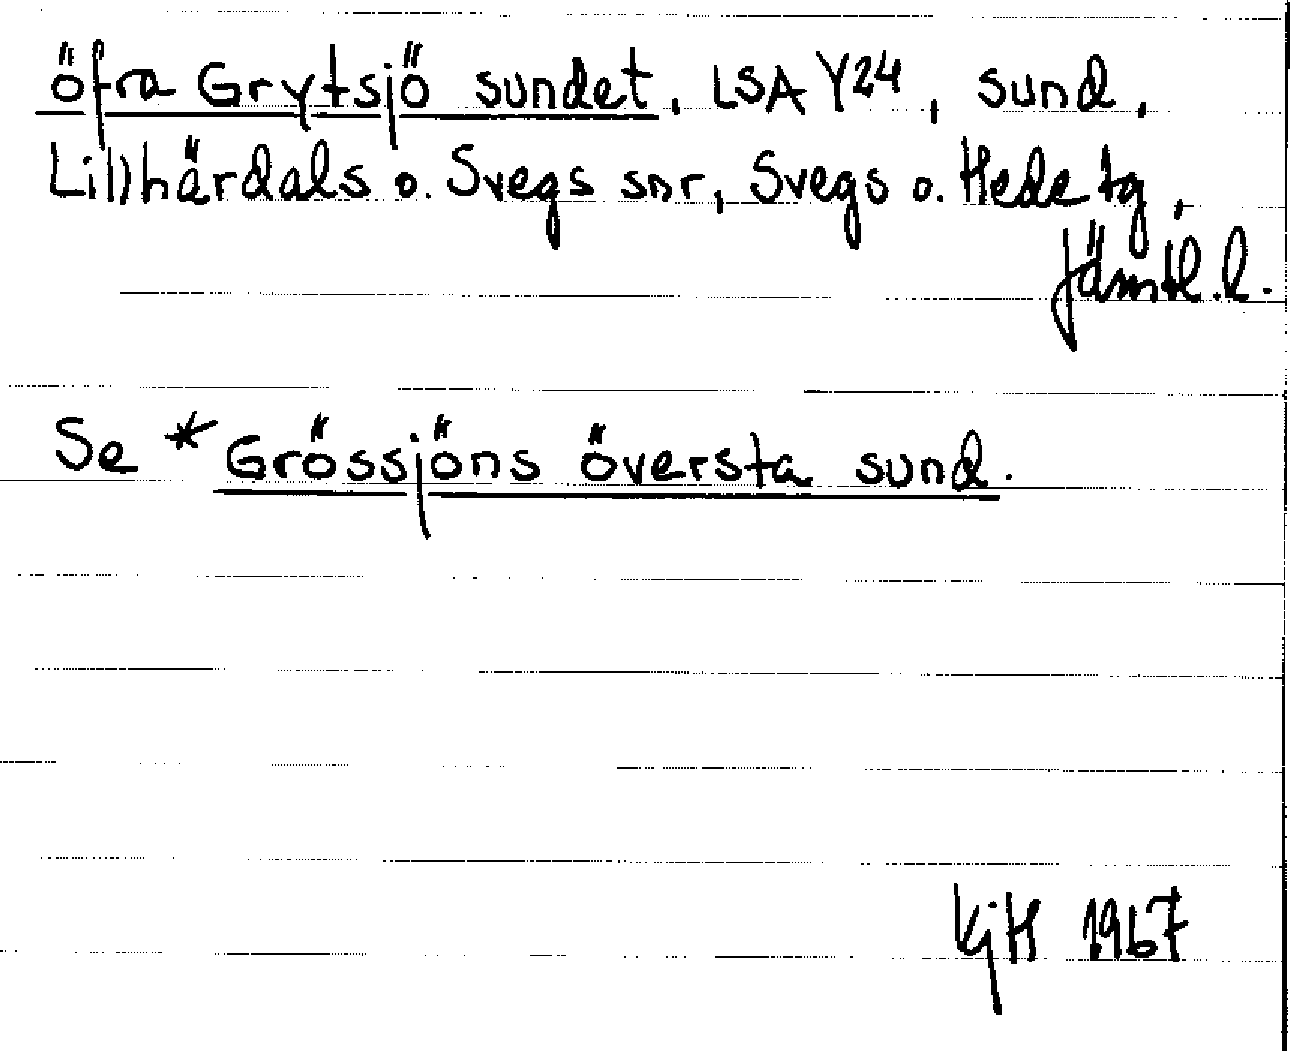 öfra Grytsjö sundet, LSA Y24, sund,
Lillhärdals o. Svegs snr, Svegs o. Hede tg,
Jämtl. l.
Se *Grössjöns översta sund.
KjH 1967